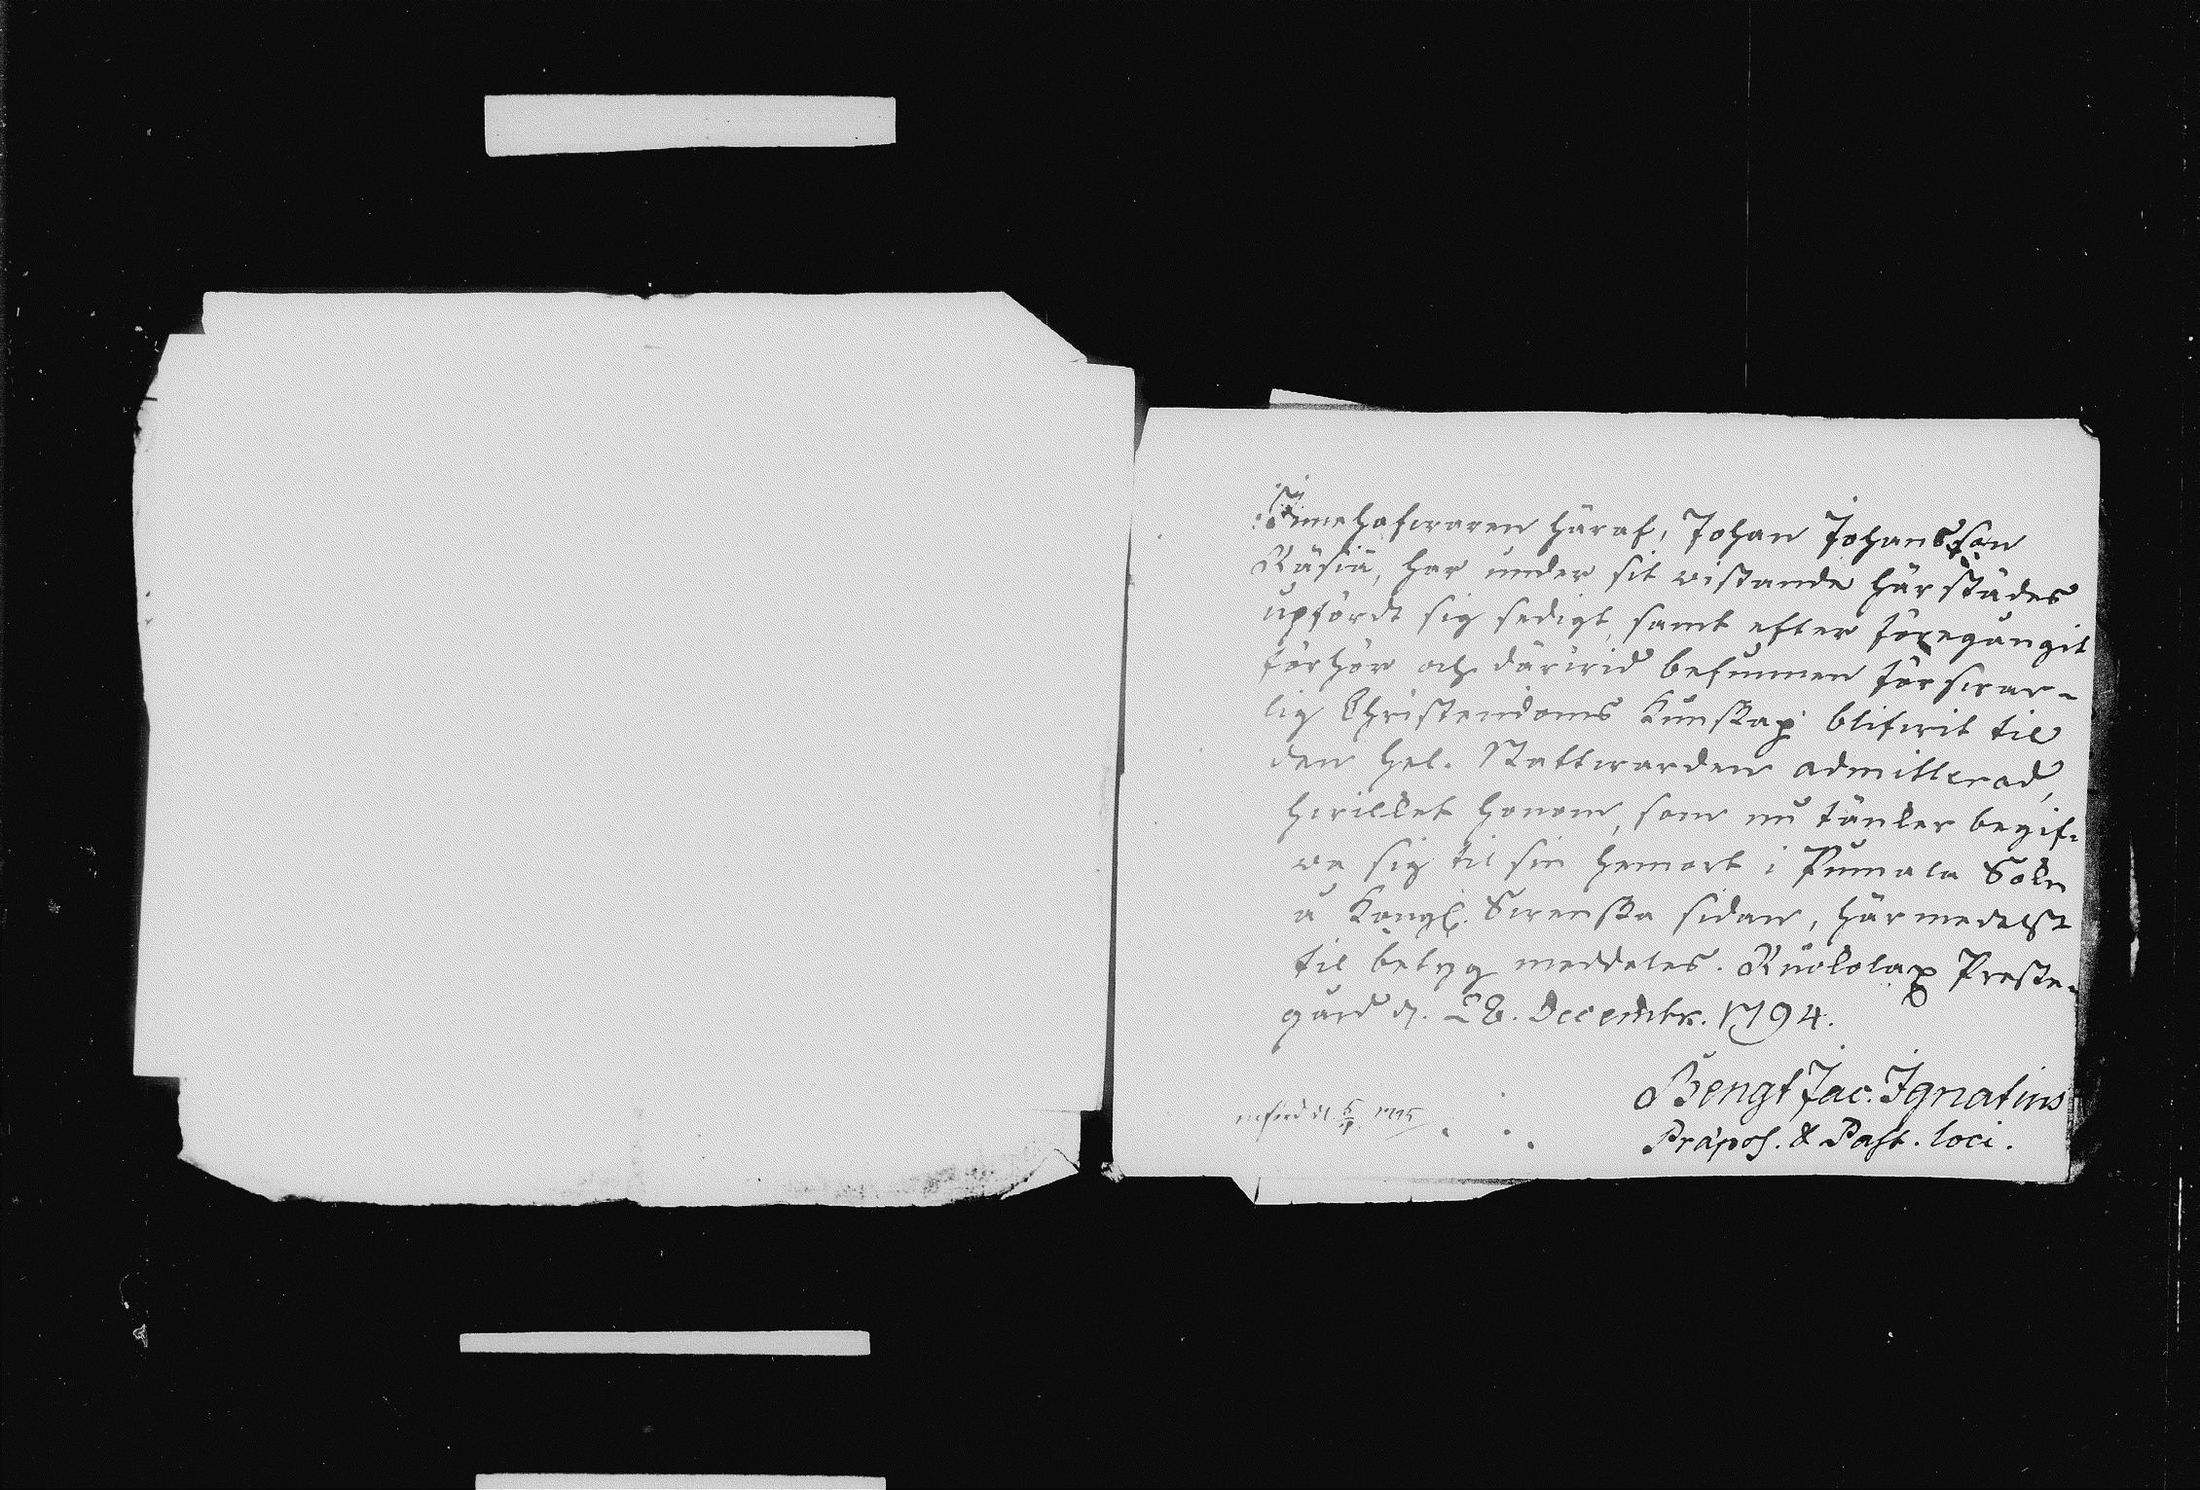 Innehafwaren häraf, Johan Johansson
Räsiä, har under sit wistande härstädes
upfördt sig sedigt, samt efter föregångit
förhör och därwid befunnen förswar-
lig Christendoms Kunskap blifwit til
den hel. Nattwarden admitterad,
hwilket honom, som nu tänker begif-
wa sig til sin hemort i Pumala Sokn
å Kongl. Swenska sidan, härmedelst
til betyg meddeles. Ruokolax Preste-
gård d. 28. Decembr. 1794.
Bengt Jac. Ignatius
Präpos. & Past. loci.
1795